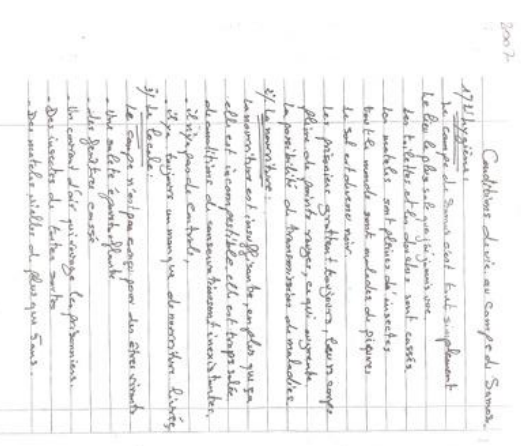 2007
Conditions de vie au camp de Samos.
1°/ L'hygiène:
Le camp de Samos c'est tout simplement
le lieu le plus sale que j'ai jamais vue.
Les toilettes et les douches sont cassés
les matelas sont pleines d'insectes
tout le monde sont malades de piqures
le sol est devenu noir.
Les prisonniers grattent toujours, leurs corps
pleins de points rouges, ce qui augmente
la possibilité de transmission de maladies.
2°/ La nourriture:
La nourriture est insuffisante, en plus que ça
elle est incomestible, elle est trop salée
de conditions de conservation sont inexistantes,
il n'ya pas de controle,
il ya toujours un manque de nourriture livrée
3°/ Le locale:
Le camp n'est pas conçu pour des êtres vivants
- Une saleté époustouflante
- des fenêtres cassé
- Un courant d'air qui ravage les prisonniers.
- Des insectes de toutes sortes
- Des matelas vieilles de plus que 5 ans.